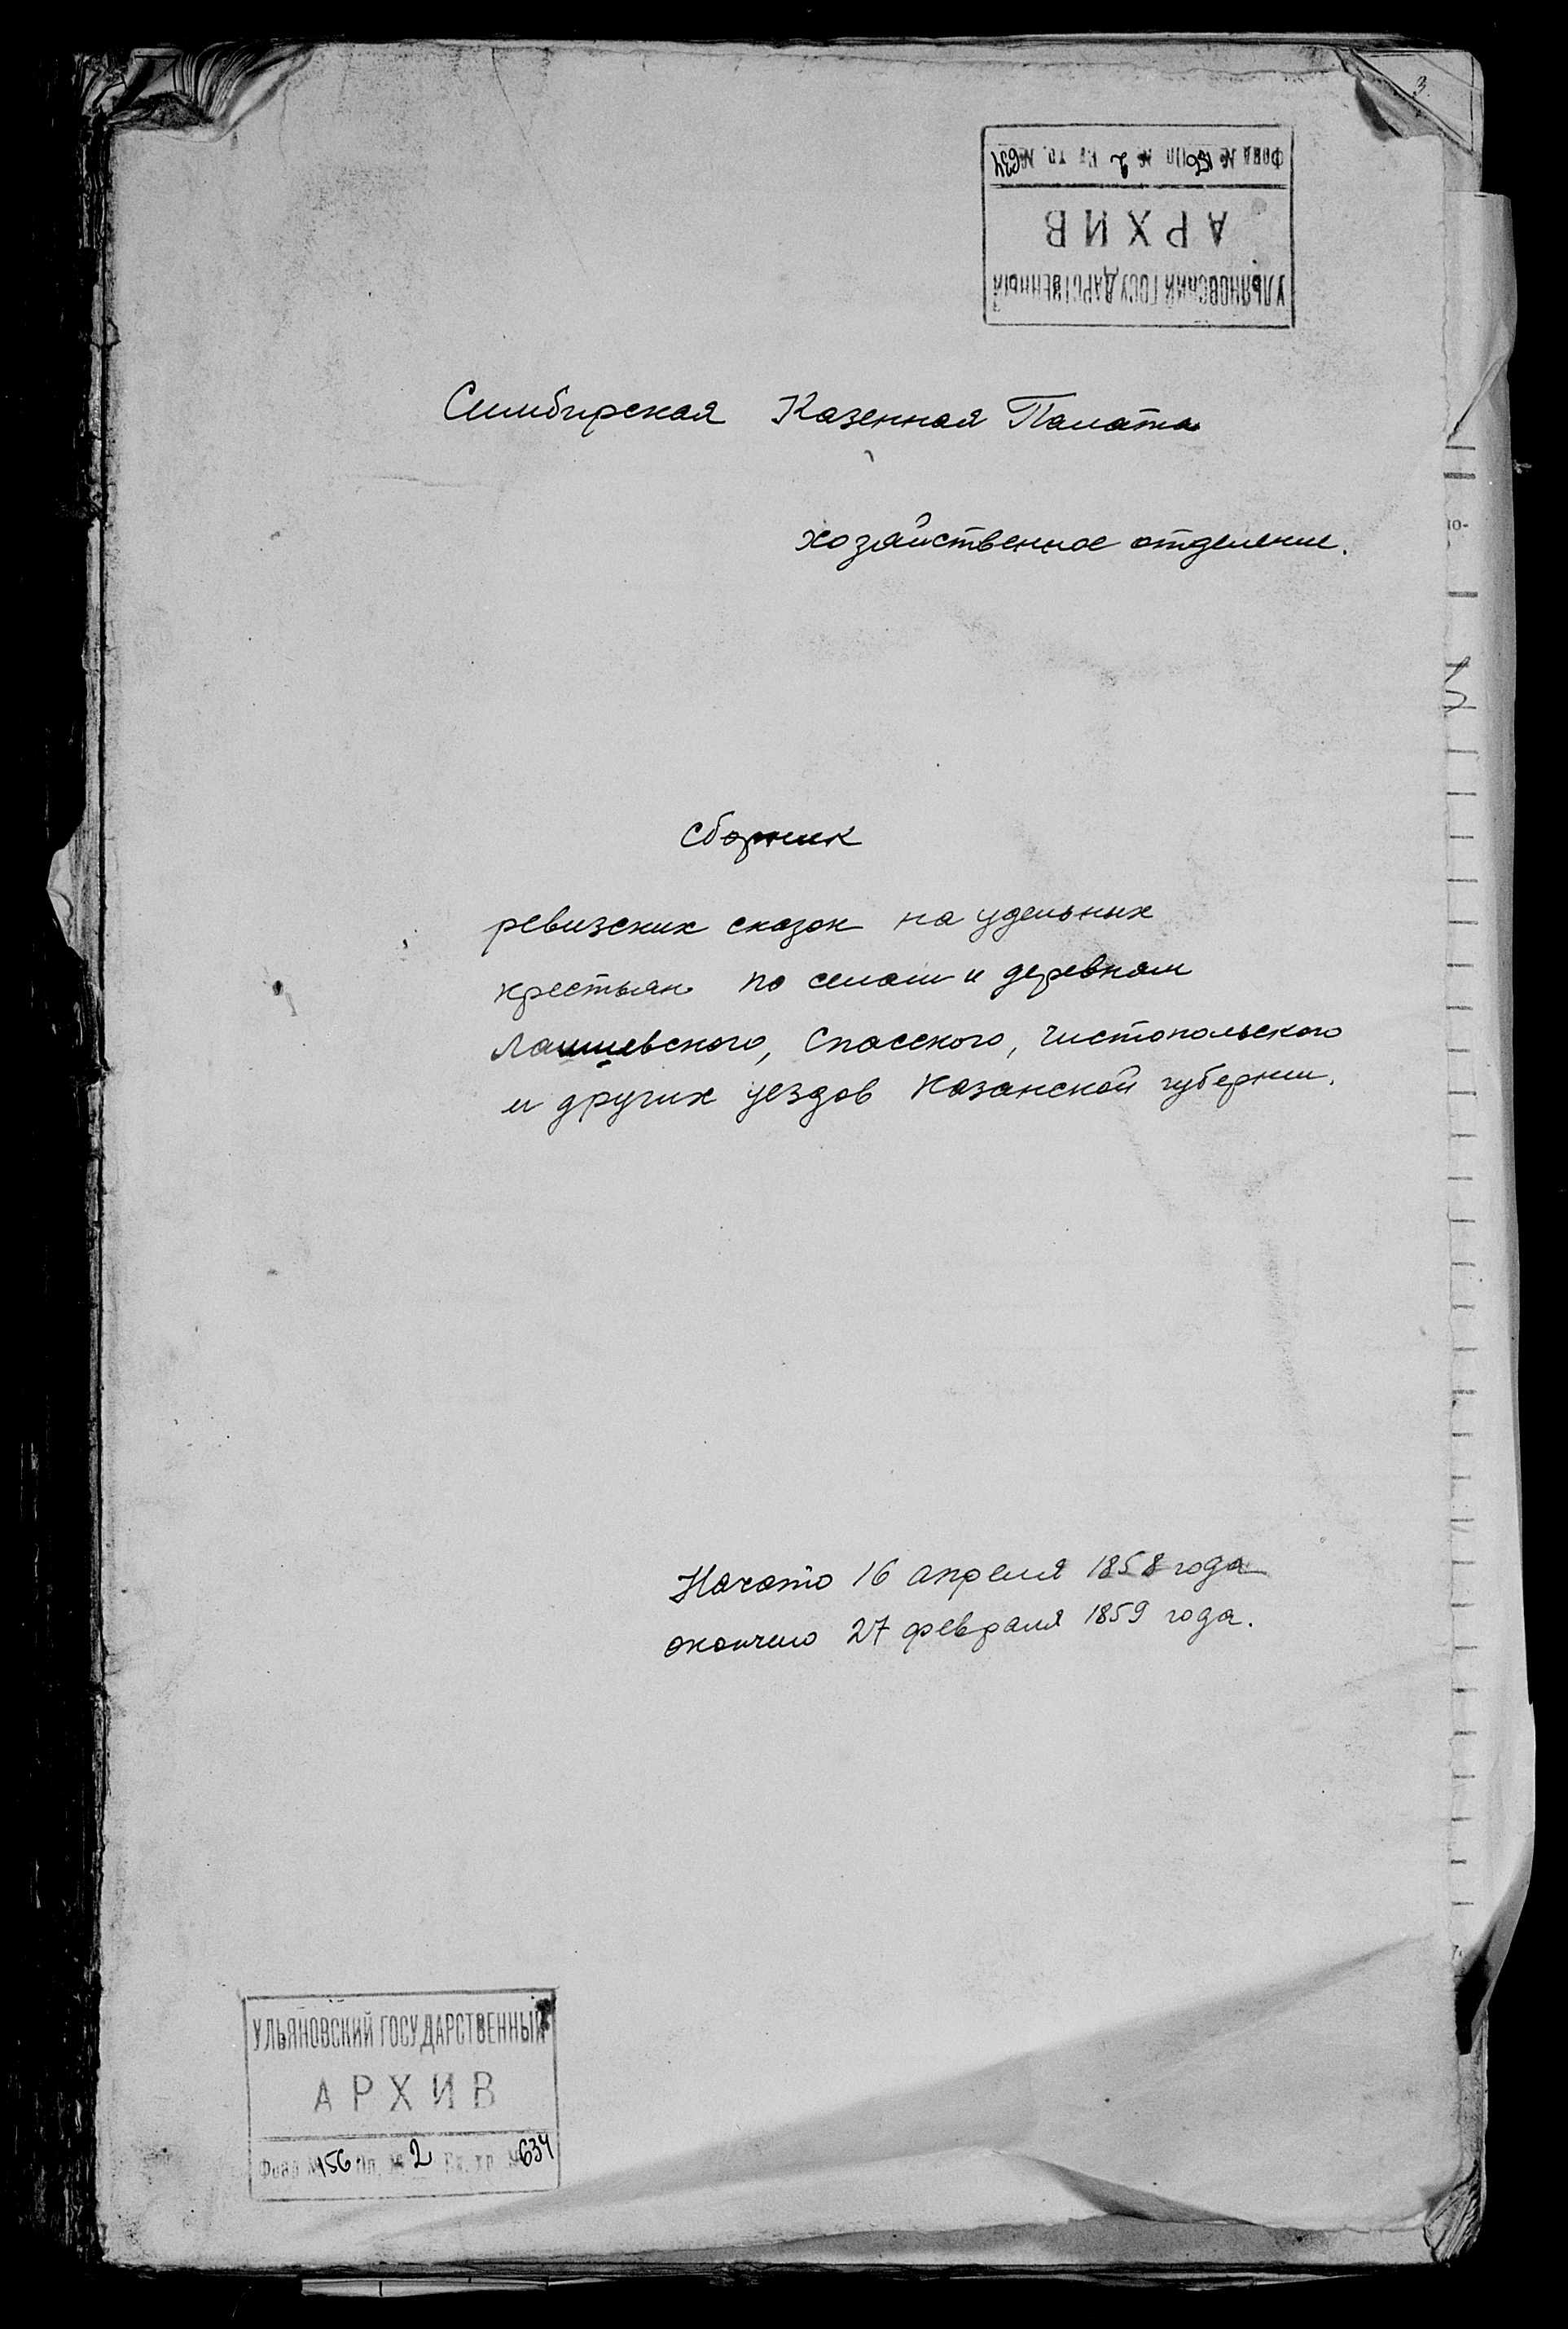 3.
УЛЬЯНОВСКИЙ ГОСУДАРСТВЕННЫЙ
АРХИВ
Фонд № 156 Оп. № 2 Ед. хр. № 634
Симбирская Казенная Палата
хозяйственное отделение.
Сборник
ревизских сказок на удельных
крестьян по селам и деревням
Лаишевского, Спасского, Чистопольского
и других уездов Казанской губернии.
Начато 16 апреля 1858 года
окончено 27 февраля 1859 года.
УЛЬЯНОВСКИЙ ГОСУДАРСТВЕННЫЙ
АРХИВ
Фонд № 156 Оп. № 2 Ед. хр. № 634